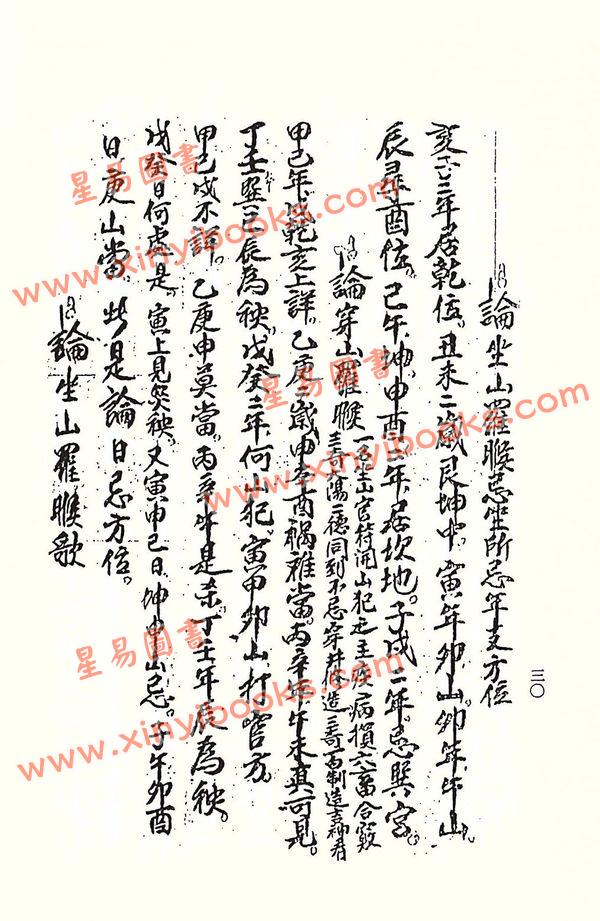 三〇
論坐山羅睺忌坐所忌年支方位
亥 三年居乾位。丑未二歲艮坤中。寅年卯山。卯年午山
辰尋酉位。己午坤。申酉 年居坎地。子戌二年忌巽宮。
論穿山羅睺
一名 山官符開山犯之主疾病損六畜合竅
陽 德同到不忌 修造
甲己年 乾亥上詳。乙庚二歲申 酉禍難當。丙辛 午未真可見。
丁壬巽巳辰為殃。戊癸二年何山犯。寅甲卯山 方
甲己戌不詳。乙庚申莫當。丙辛午是杀。丁壬年辰為殃。
戊癸日何處是。寅上見災殃。又寅申己日。坤 山忌。子午卯酉
日庚山當。此是論日忌方位。
論坐山羅睺歌
星易圖書
www.xinyibooks.com
星易圖書
www.xinyibooks.com
星易圖書
www.xinyibooks.com